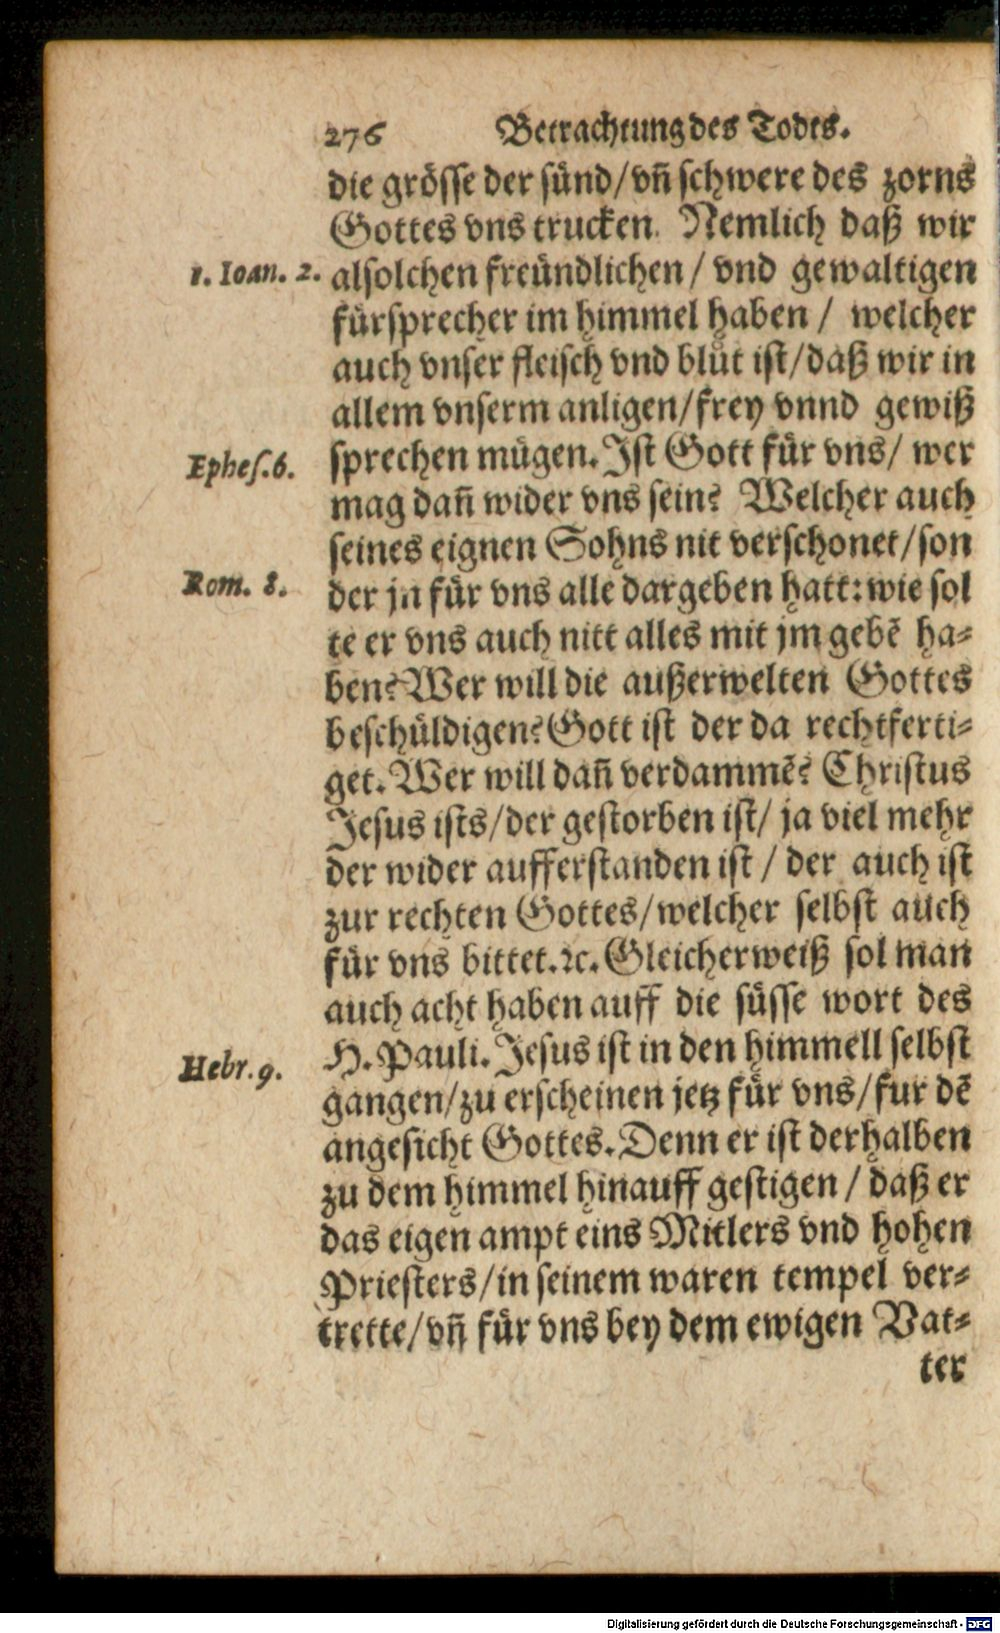 276 Betrachtung des Todts.
die grösse der sünd/vñ schwere des zorns
Gottes vns trucken. Nemlich daß wir
1. Ioan. 2. alsolchen freündlichen / vnd gewaltigen
fürsprecher im himmel haben / welcher
auch vnser fleisch vnd blůt ist/daß wir in
allem vnserm anligen/frey vnnd gewiß
Ephes.6. sprechen mügen. Ist Gott für vns/ wer
mag dañ wider vns sein? Welcher auch
seines eignen Sohns nit verschonet/son
Rom. 8. der jn für vns alle dargeben hatt: wie sol
te er vns auch nitt alles mit jm gebē ha⸗
ben? Wer will die außerwelten Gottes
beschüldigen? Gott ist der da rechtferti⸗
get. Wer will dañ verdammē? Christus
Jesus ists/der gestorben ist/ ja viel mehr
der wider aufferstanden ist / der auch ist
zur rechten Gottes/welcher selbst auch
für vns bittet.ꝛc. Gleicherweiß sol man
auch acht haben auff die süsse wort des
Hebr.9. H. Pauli. Jesus ist in den himmell selbst
gangen/zu erscheinen jetz für vns/fur dē
angesicht Gottes. Denn er ist derhalben
zu dem himmel hinauff gestigen / daß er
das eigen ampt eins Mitlers vnd hohen
Priesters/in seinem waren tempel ver⸗
trette/vñ für vns bey dem ewigen Vat⸗
ter
Digitalisierung gefördert durch die Deutsche Forschungsgemeinschaft - DFG